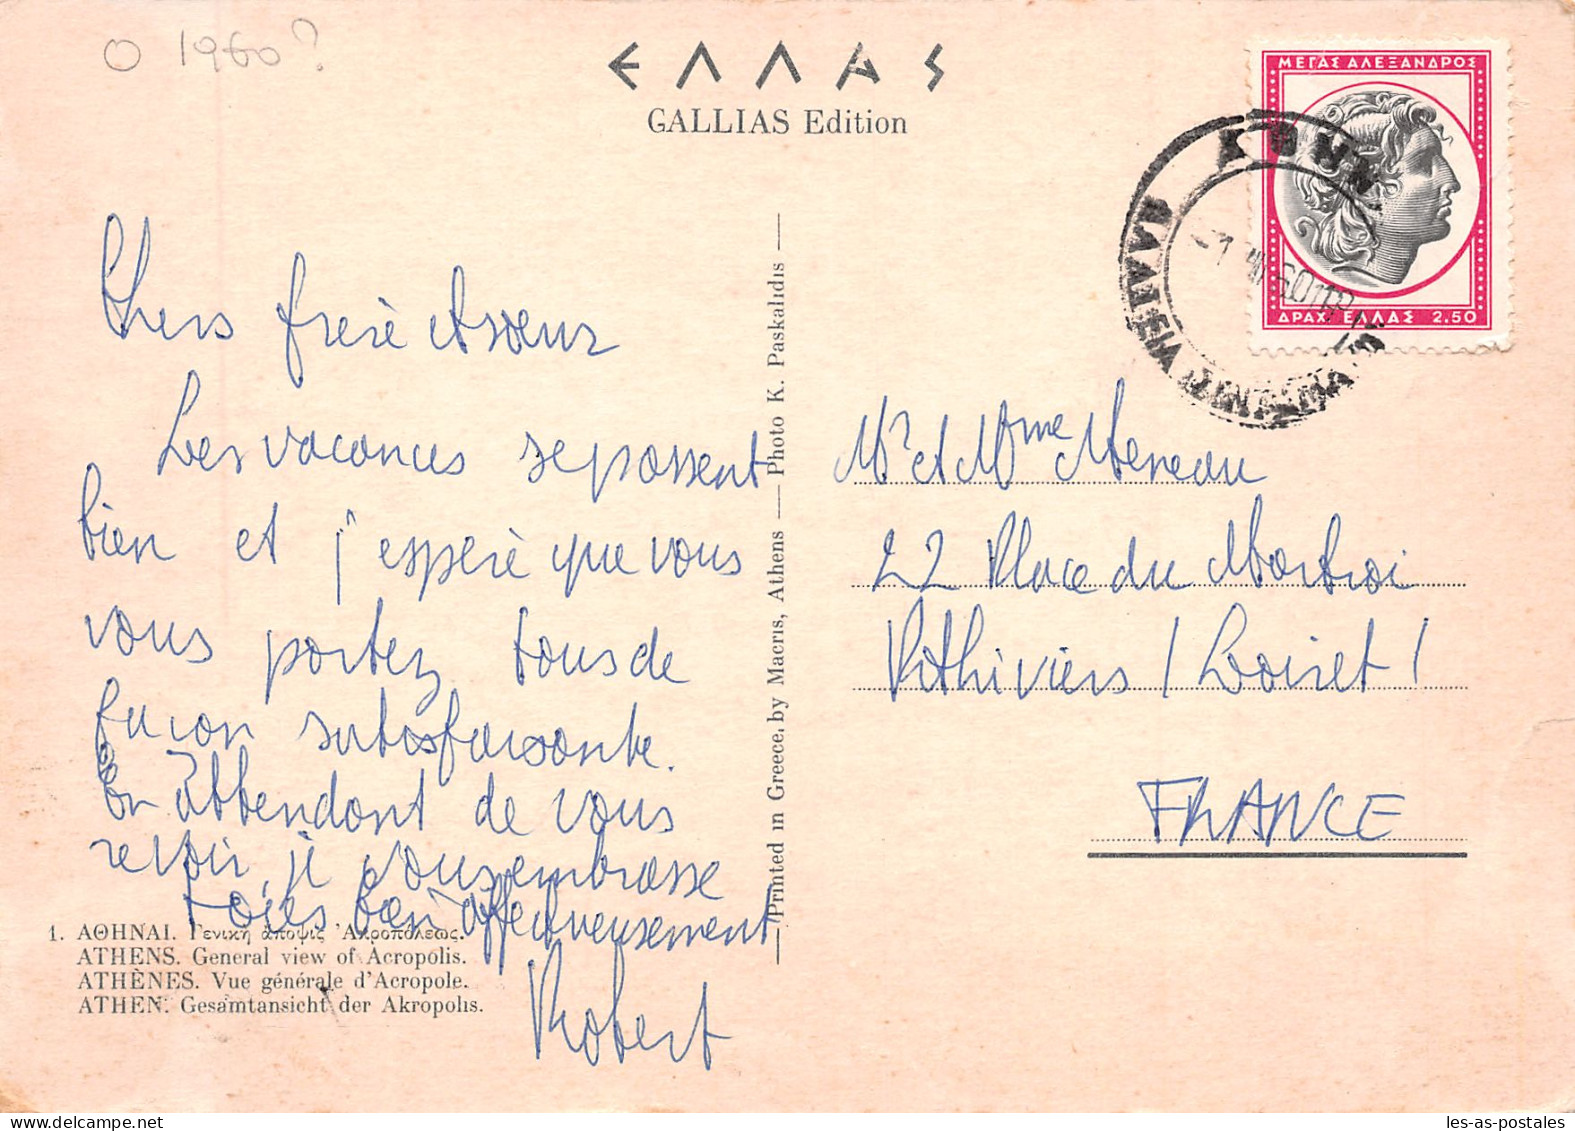 O 1960?
ΕΛΛΑΣ
GALLIAS Edition
ΜΕΓΑΣ ΑΛΕΞΑΝΔΡΟΣ
ΔΡΑΧ. ΕΛΛΑΣ 2.50
Chers frère et soeur
Les vacances se passent
bien et j'espère que vous
vous portez tous de
façon satisfaisante.
En attendant de vous
revoir, je vous embrasse
tous bien affectueusement
Robert
Printed in Greece, by Macris, Athens — Photo K. Paskalidis
Mr et Mme Meneau
22 Place du Martroi
Pithiviers / Loiret /
FRANCE
1. ΑΘΗΝΑΙ. Γενική άποψις Ἀκροπόλεως.
ATHENS. General view of Acropolis.
ATHÈNES. Vue générale d'Acropole.
ATHEN. Gesamtansicht der Akropolis.
les-as-postales